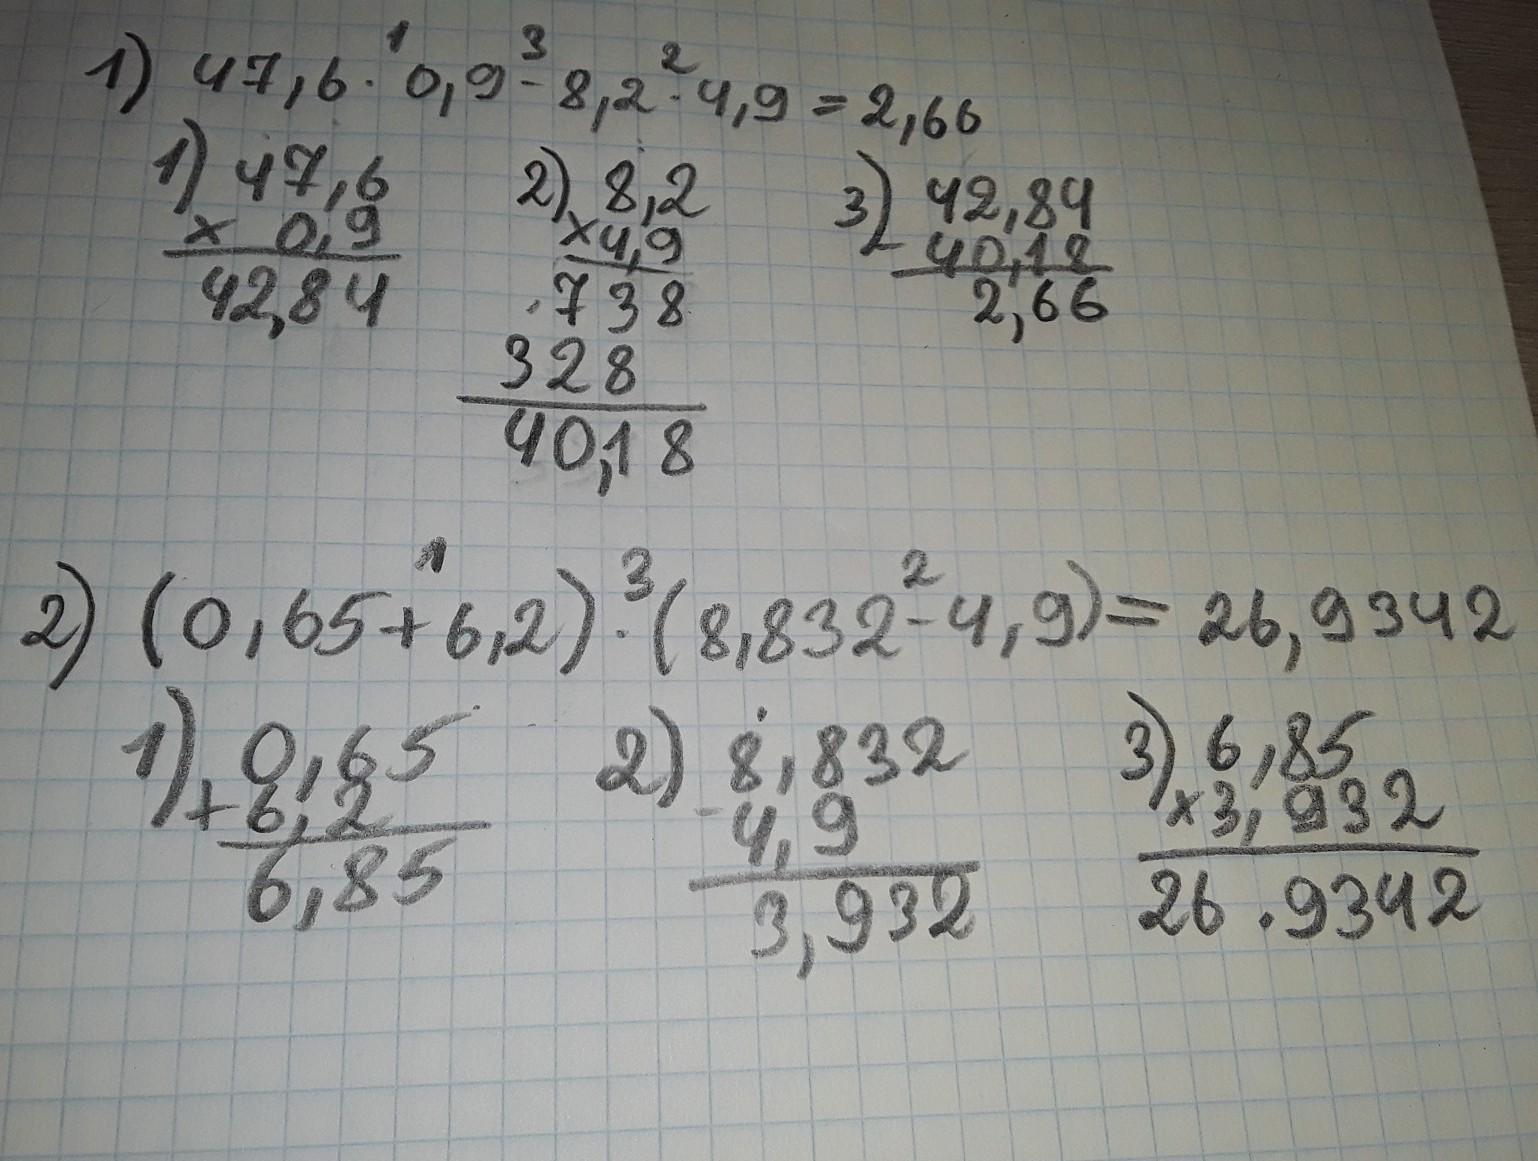 1) 47,6 · 0,9 - 8,2 · 4,9 = 2,66
1 3 2
1) 47,6 2) 8,2 3) 42,84
× 0,9 ×4,9 - 40,18
42,84 738 2,66
328
40,18
1 3 2
2) (0,65+6,2) · (8,832-4,9) = 26,9342
1) 0,65 2) 8,832 3) 6,85
+6,2 - 4,9 ×3,932
6,85 3,932 26.9342